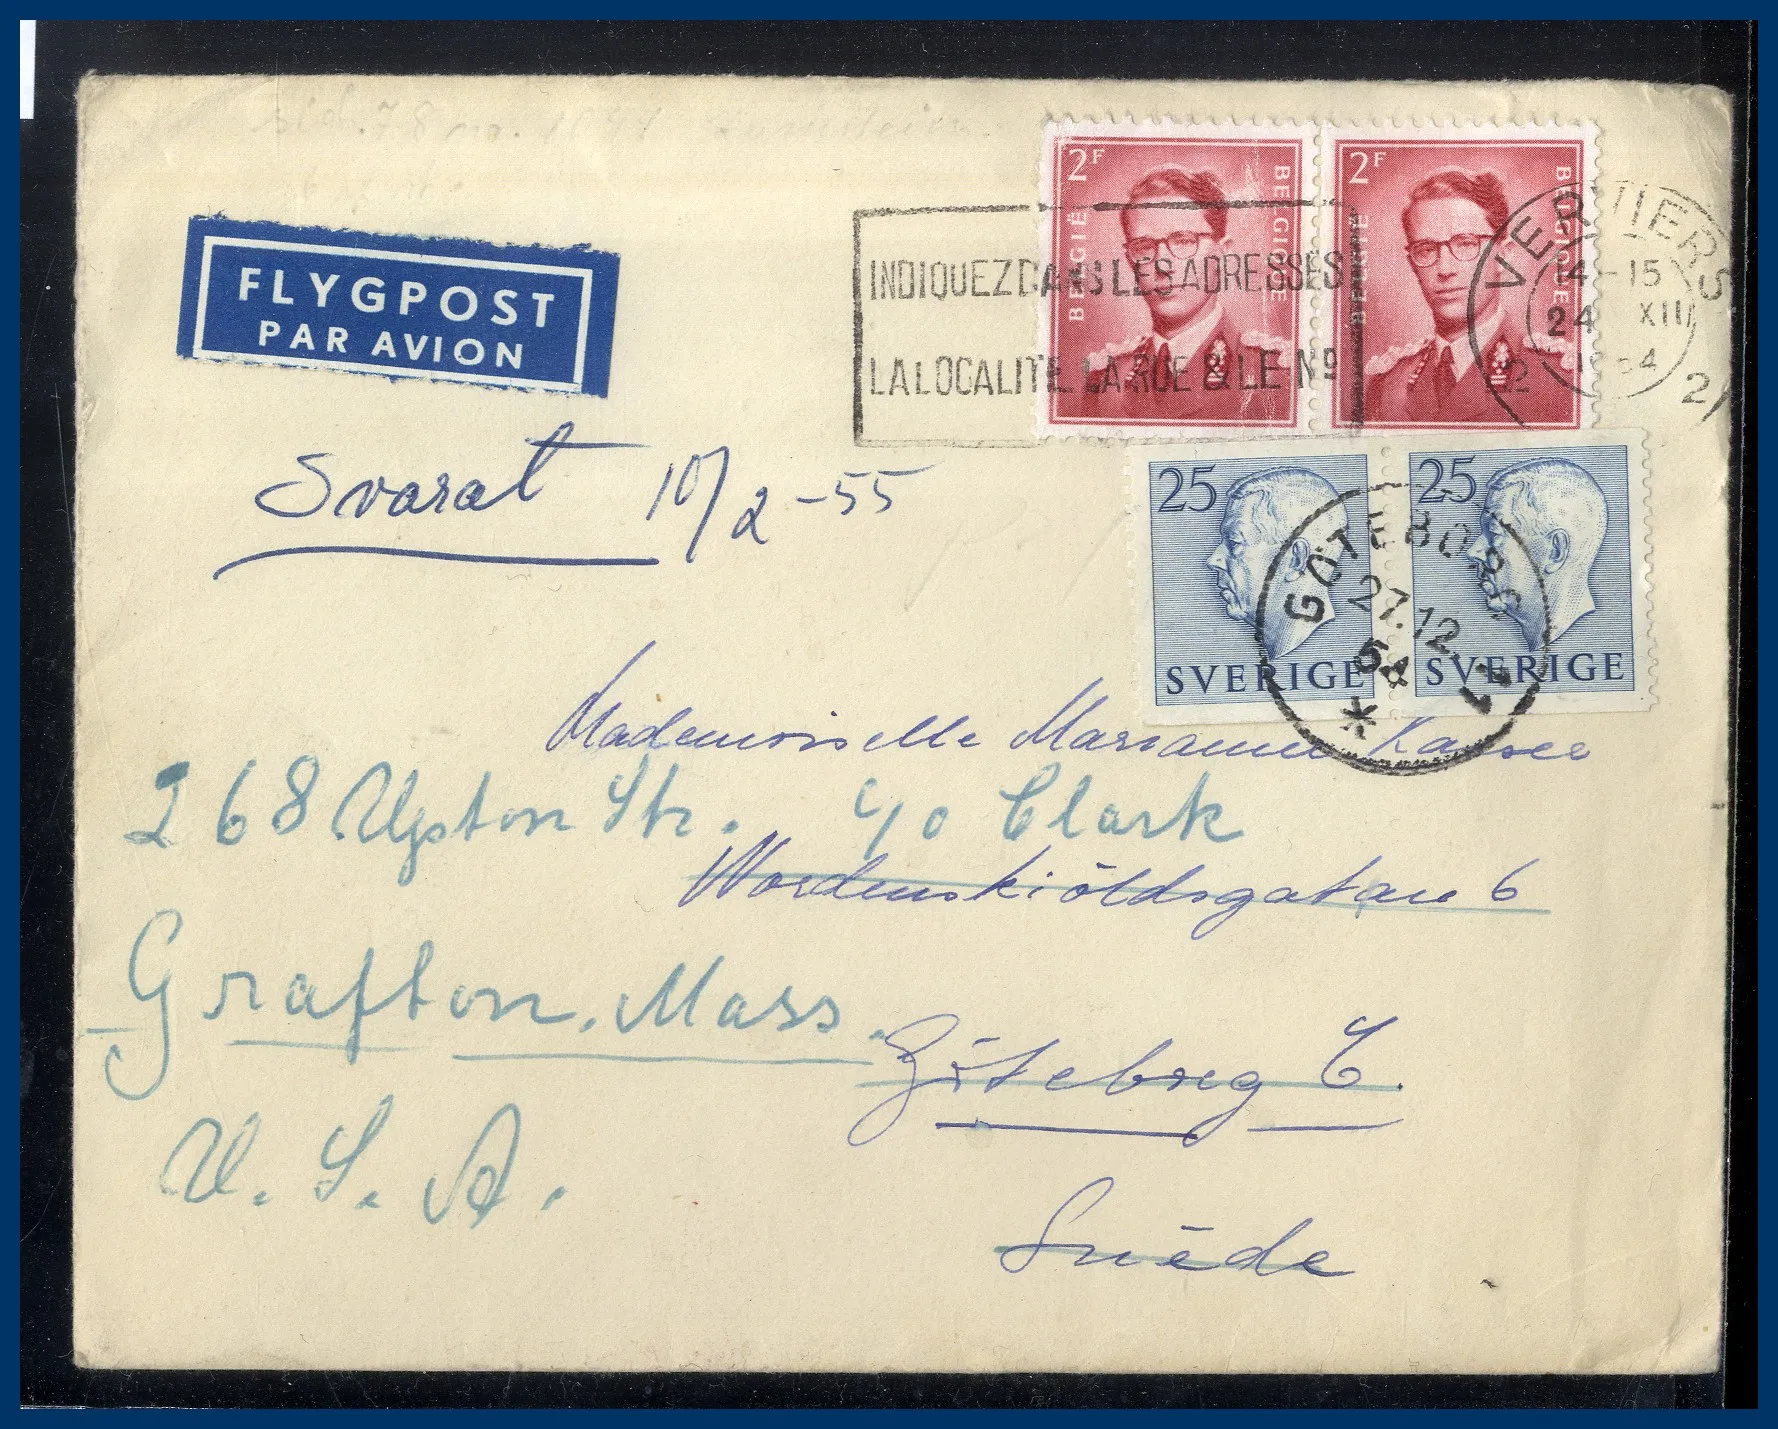 2F BELGIË BELGIQUE
2F BELGIË BELGIQUE
FLYGPOST
PAR AVION
INDIQUEZ DANS LES ADRESSES
LA LOCALITE LA RUE & LE Nº
VERVIERS
14-15
24 XII
1954
2 2
Svarat 10/2-55
25 SVERIGE
25 SVERIGE
GÖTEBORG 1
27.12.
54
Mademoiselle Marianne
268 Upton Str. c/o Clark
Nordenskiöldsgatan 6
Grafton. Mass.
Göteborg C.
U. S. A.
Suède